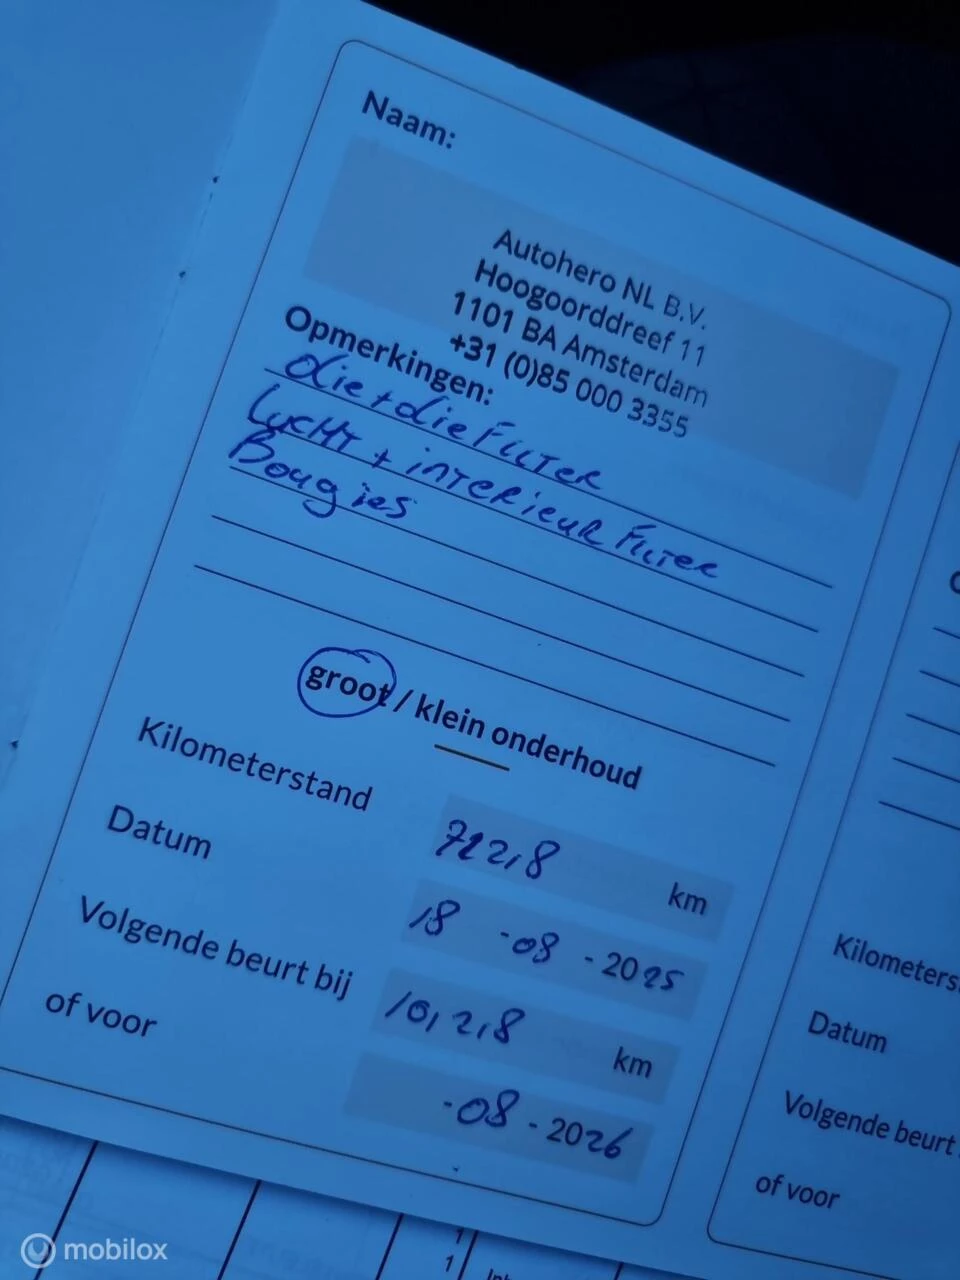 Naam:
Autohero NL B.V.
Hoogoorddreef 11
1101 BA Amsterdam
+31 (0)85 000 3355
Opmerkingen:
olie + olie Filter
LUCHT + interieur Filter
Bougies
groot / klein onderhoud
Kilometerstand
722,8 km
Datum
18 -08 - 2025
Volgende beurt bij
10,2,8 km
of voor
-08 - 2026
Kilometers
Datum
Volgende beurt
of voor
mobilox